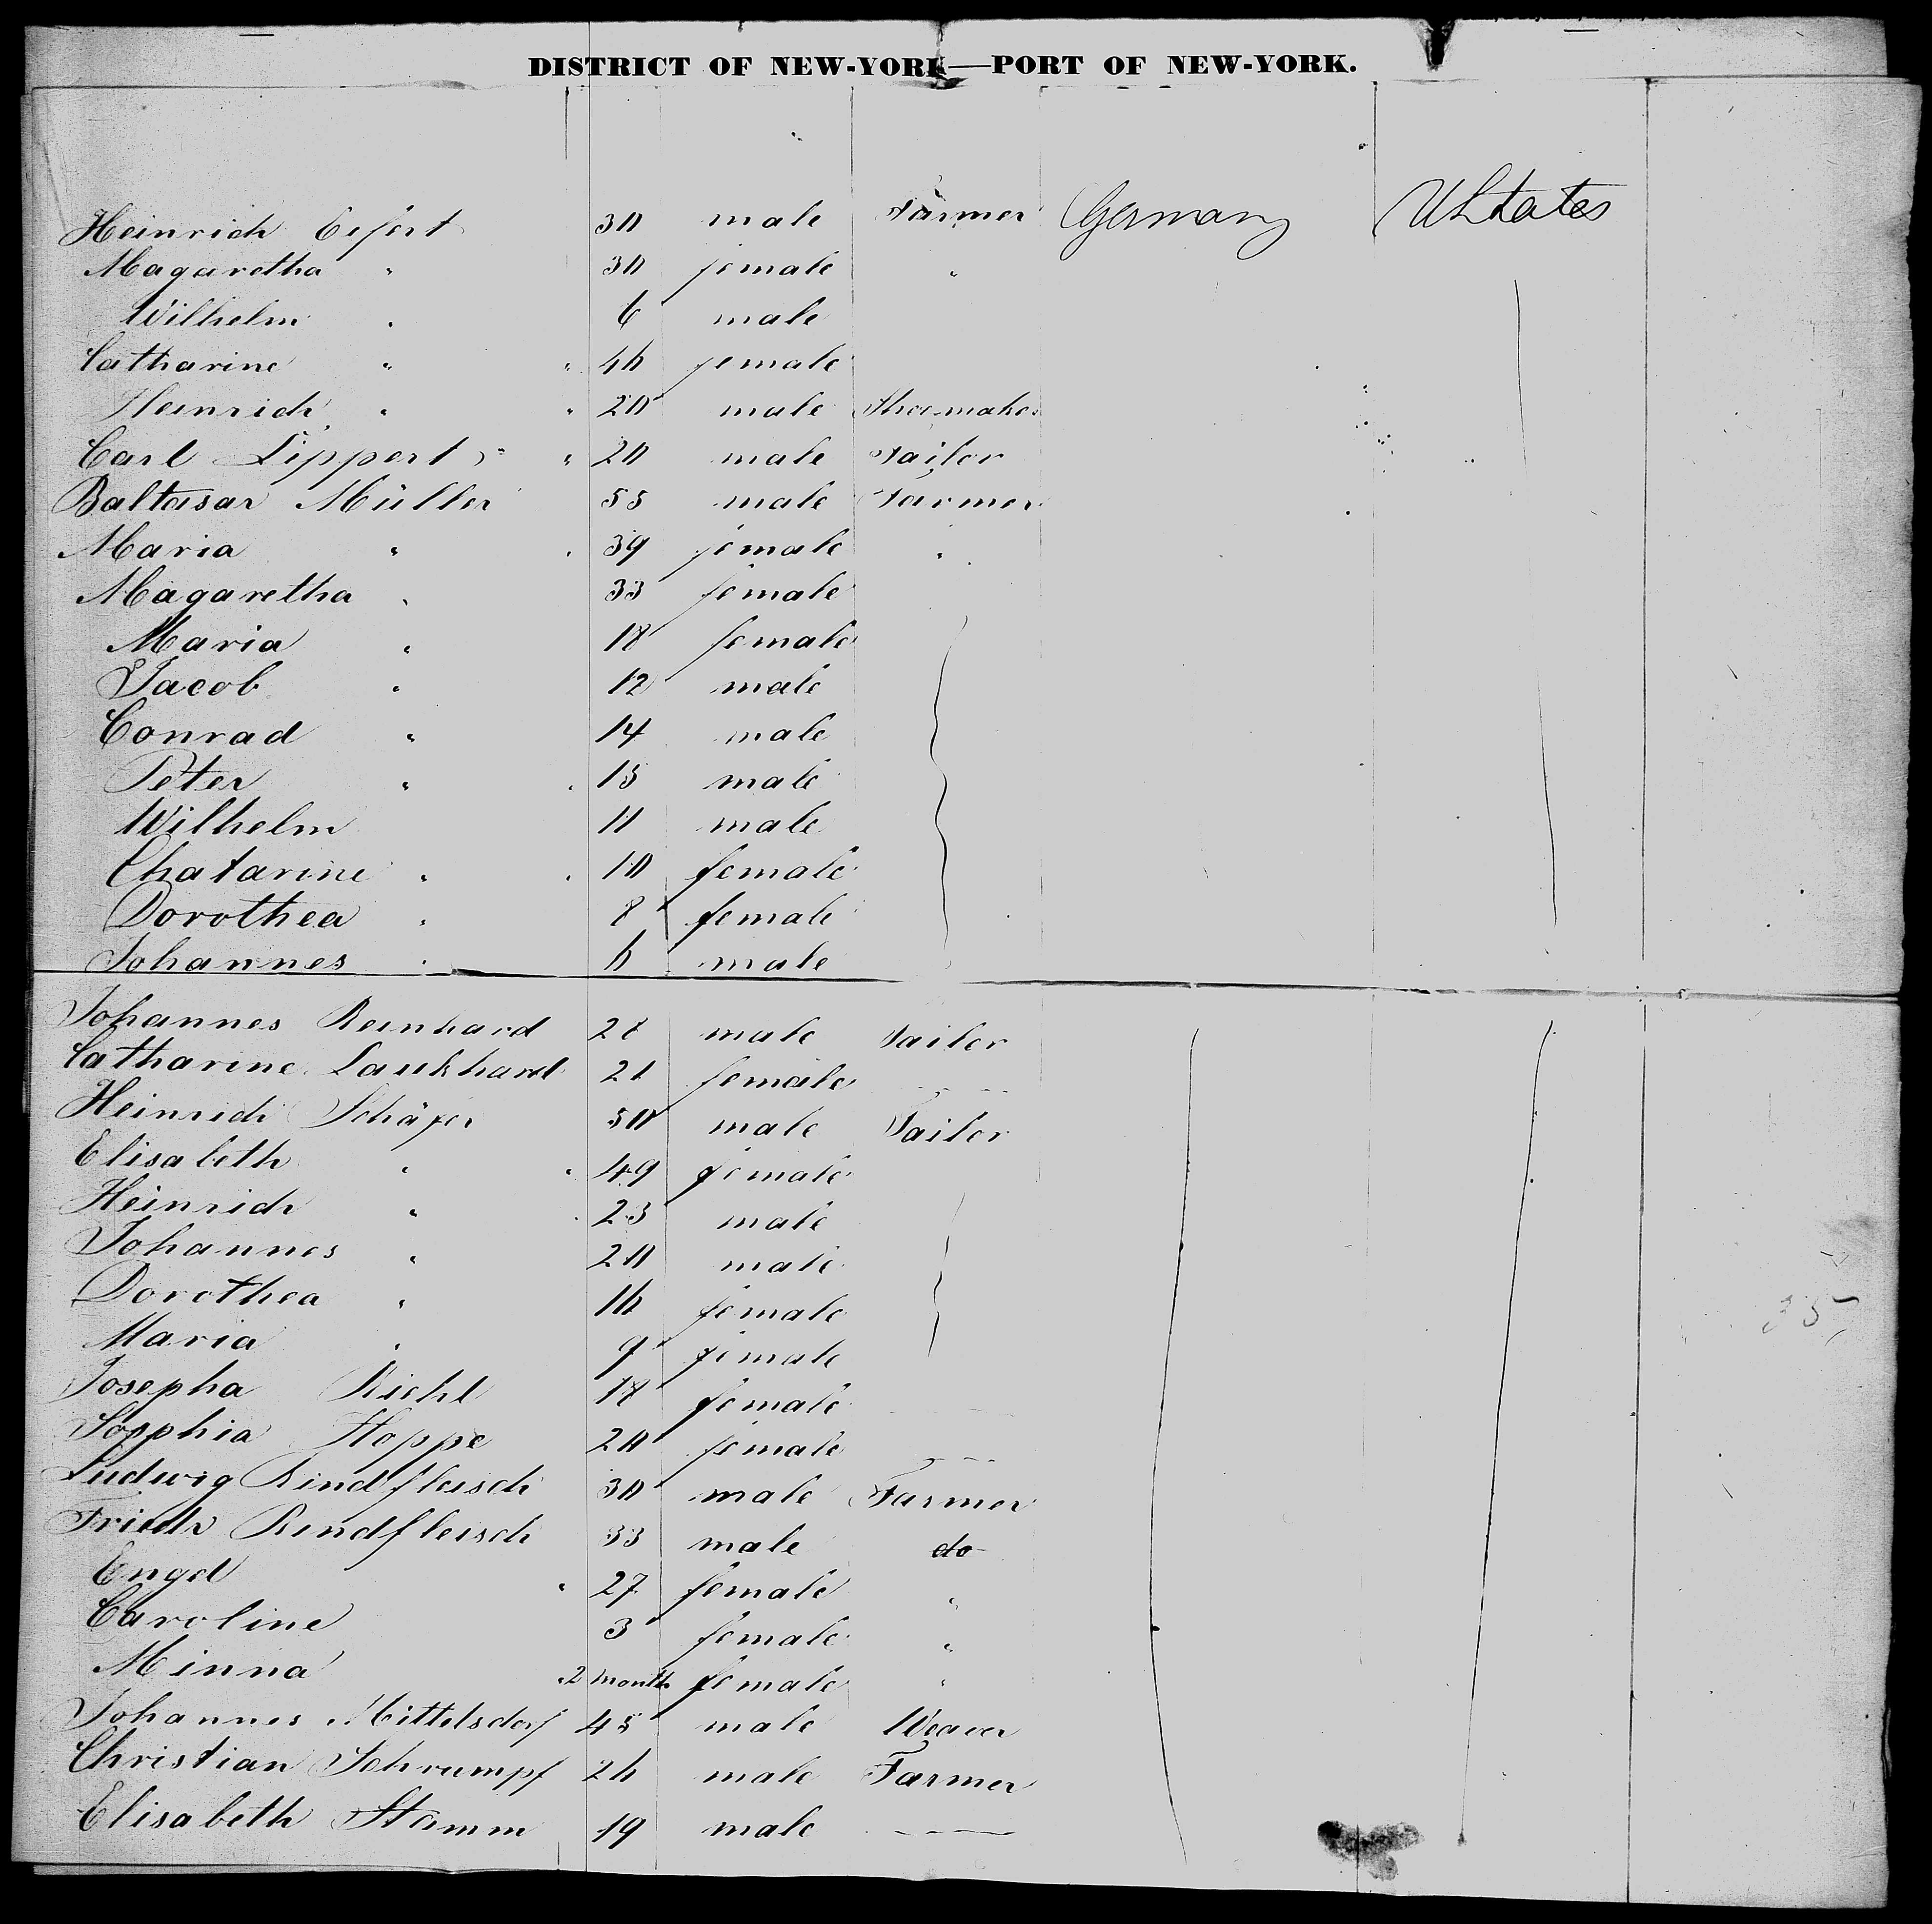 DISTRICT OF NEW-YORK—PORT OF NEW-YORK.
Heinrich Eifert 30 male Farmer Germany UStates
Magaretha " 30 female "
Wilhelm " 6 male
Catharine " " female
Heinrich " " 20 male Shoemaker
Carl Lippert " 20 male Tailor
Baltasar Müller 55 male Farmer
Maria " " 39 female "
Magaretha " 33 female
Maria " 18 female
Jacob " 12 male
Conrad " 14 male
Peter " " 15 male
Wilhelm 11 male
Chatarine " " 10 female
Dorothea " 8 female
Johannes " male
Johannes Reinhard 28 male Tailor
Catharine Laukhard 21 female
Heinrich Schäfer 50 male Tailor
Elisabeth " " 49 female
Heinrich " 23 male
Johannes " 20 male
Dorothea " female
Maria " 9 female
Josepha Riehl 18 female
Sopphia Hoppe 20 female
Ludwig Rindfleisch 30 male Farmer
Friedr Rindfleisch 33 male do
Engel " 27 female "
Caroline 3 female "
Minna " 2 month female "
Johannes Mittelsdorf 45 male Weaver
Christian Schrumpf male Farmer
Elisabeth Stamm 19 male
35